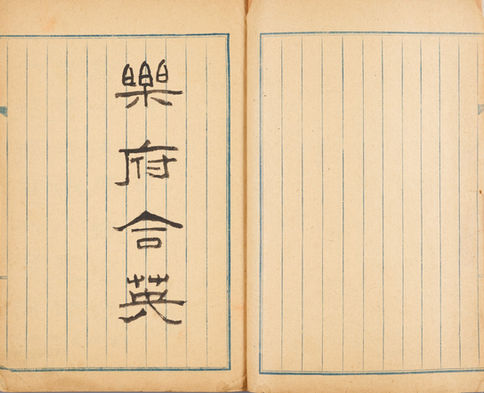 樂府合英